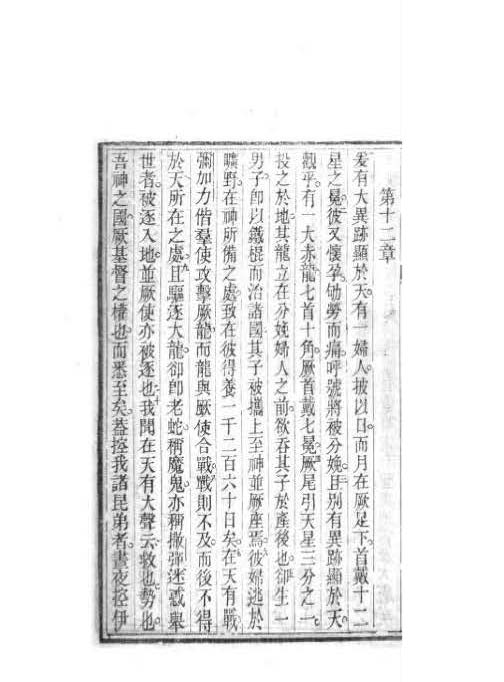 第十二章
爰有大異跡顯於天有一婦人披以日而月在厥足下首戴十二
星之冕彼又懷孕劬勞而痛呼號將被分娩且別有異跡顯於天
觀乎有一大赤龍七首十角厥首戴七冕厥尾引天星三分之一
投之於地其龍立在分娩婦人之前欲吞其子於產後也卻生一
男子卽以鐵棍而治諸國其子被攜上至神並厥座焉彼婦逃於
曠野在神所備之處致在彼得養一千二百六十日矣在天有戰
彌加力偕羣使攻擊厥龍而龍與厥使合戰戰則不及而後不得
於天所在之處且驅逐大龍卻卽老蛇稱魔鬼亦稱撒彈迷惑舉
世者被逐入地並厥使亦被逐也我聞在天有大聲云救也勢也
吾神之國厥基督之權也而悉至矣葢控我諸昆弟者晝夜控伊